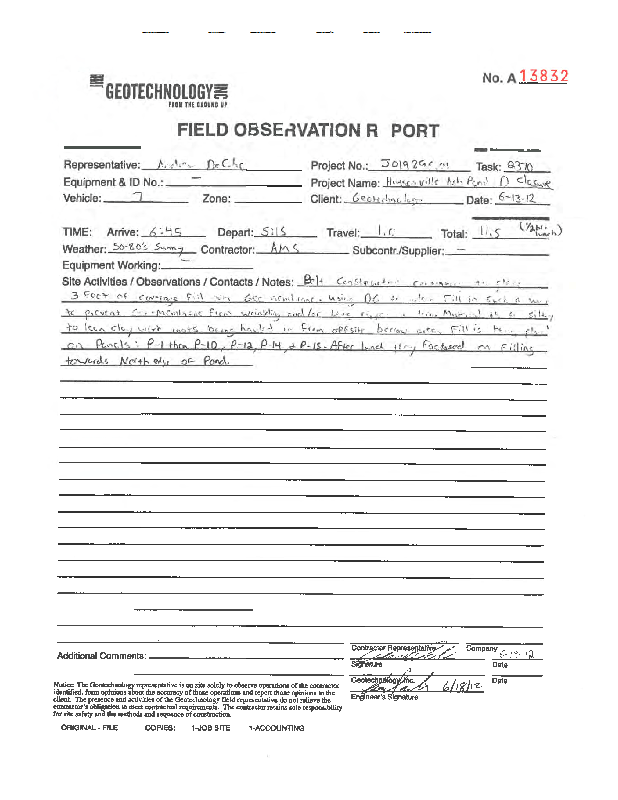 No. A 13832
GEOTECHNOLOGY
FROM THE GROUND UP
FIELD OBSERVATION R PORT
Representative: Project No.: J01928 Task:
Equipment & ID No.: — Project Name: Hutsonville Ash Pond D Closure
Vehicle: 7 Zone: Client: Geotechnology Date: 6-13-12
TIME: Arrive: 6:45 Depart: 5:15 Travel: 1.0 Total: 11.5 (1/2 hr lunch)
Weather: 50-80's Sunny Contractor: AMS Subcontr./Supplier: —
Equipment Working: —
Site Activities / Observations / Contacts / Notes: Construction
3 Feet of coverage Fill over Geo membrane. Using D6 Fill in such a way
to prevent Geo-membrane from wrinkling and/or Material is a silty
to lean clay with roots being hauled in from offsite borrow area. Fill is
on Panels: P-1 thru P-10, P-12, P-14, & P-15. After lunch they Focused on Filling
towards North edge of Pond.
Additional Comments:
Contractor Representative Company
Signature Date
Geotechnology, Inc. 6/18/12 Date
Engineer's Signature
Notice: The Geotechnology representative is on site solely to observe operations of the contractor
identified, form opinions about the accuracy of those operations and report those opinions to the
client. The presence and activities of the Geotechnology field representative do not relieve the
contractor's obligation to meet contractual requirements. The contractor retains sole responsibility
for site safety and the methods and sequence of construction.
ORIGINAL - FILE COPIES: 1-JOB SITE 1-ACCOUNTING